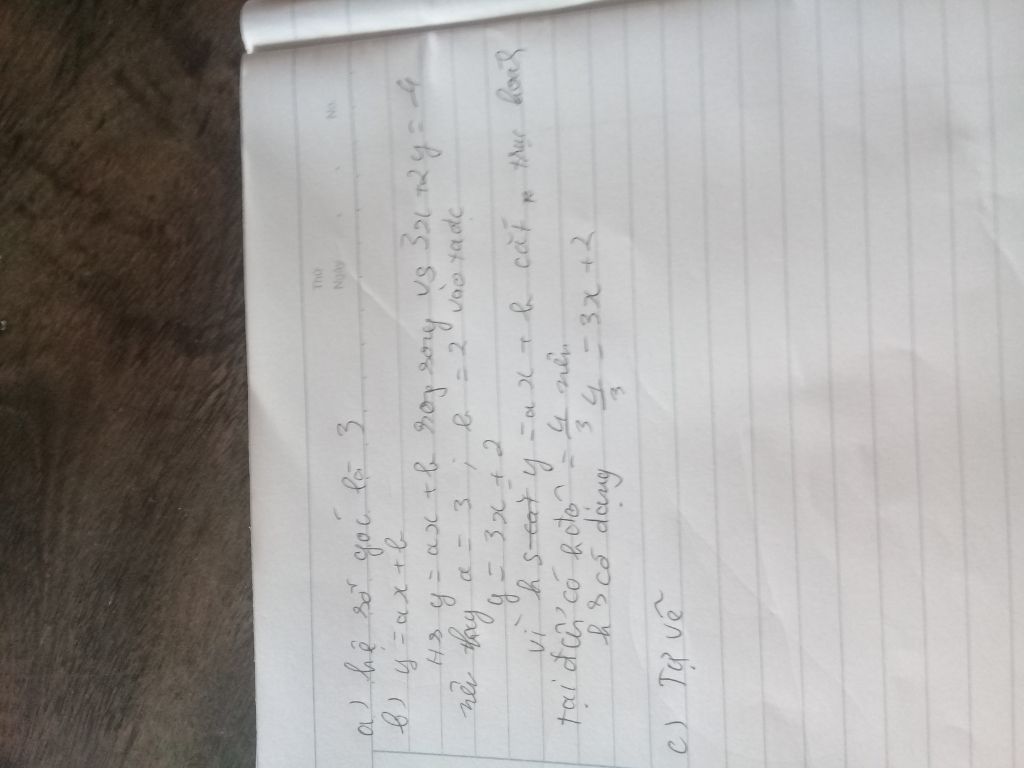 Thứ
Ngày
No.
a) hệ số góc là 3
b) y = ax + b
Hs y = ax + b song song vs 3x + 2y = -4
nên thay a = 3 ; b = 2 vào tadc
y = 3x + 2
vì hs cắt y = ax + b cắt trục hoành
tại điểm có h độ = 4/3 nên
hs có dạng 4/3 = 3x + 2
c) Tự vẽ